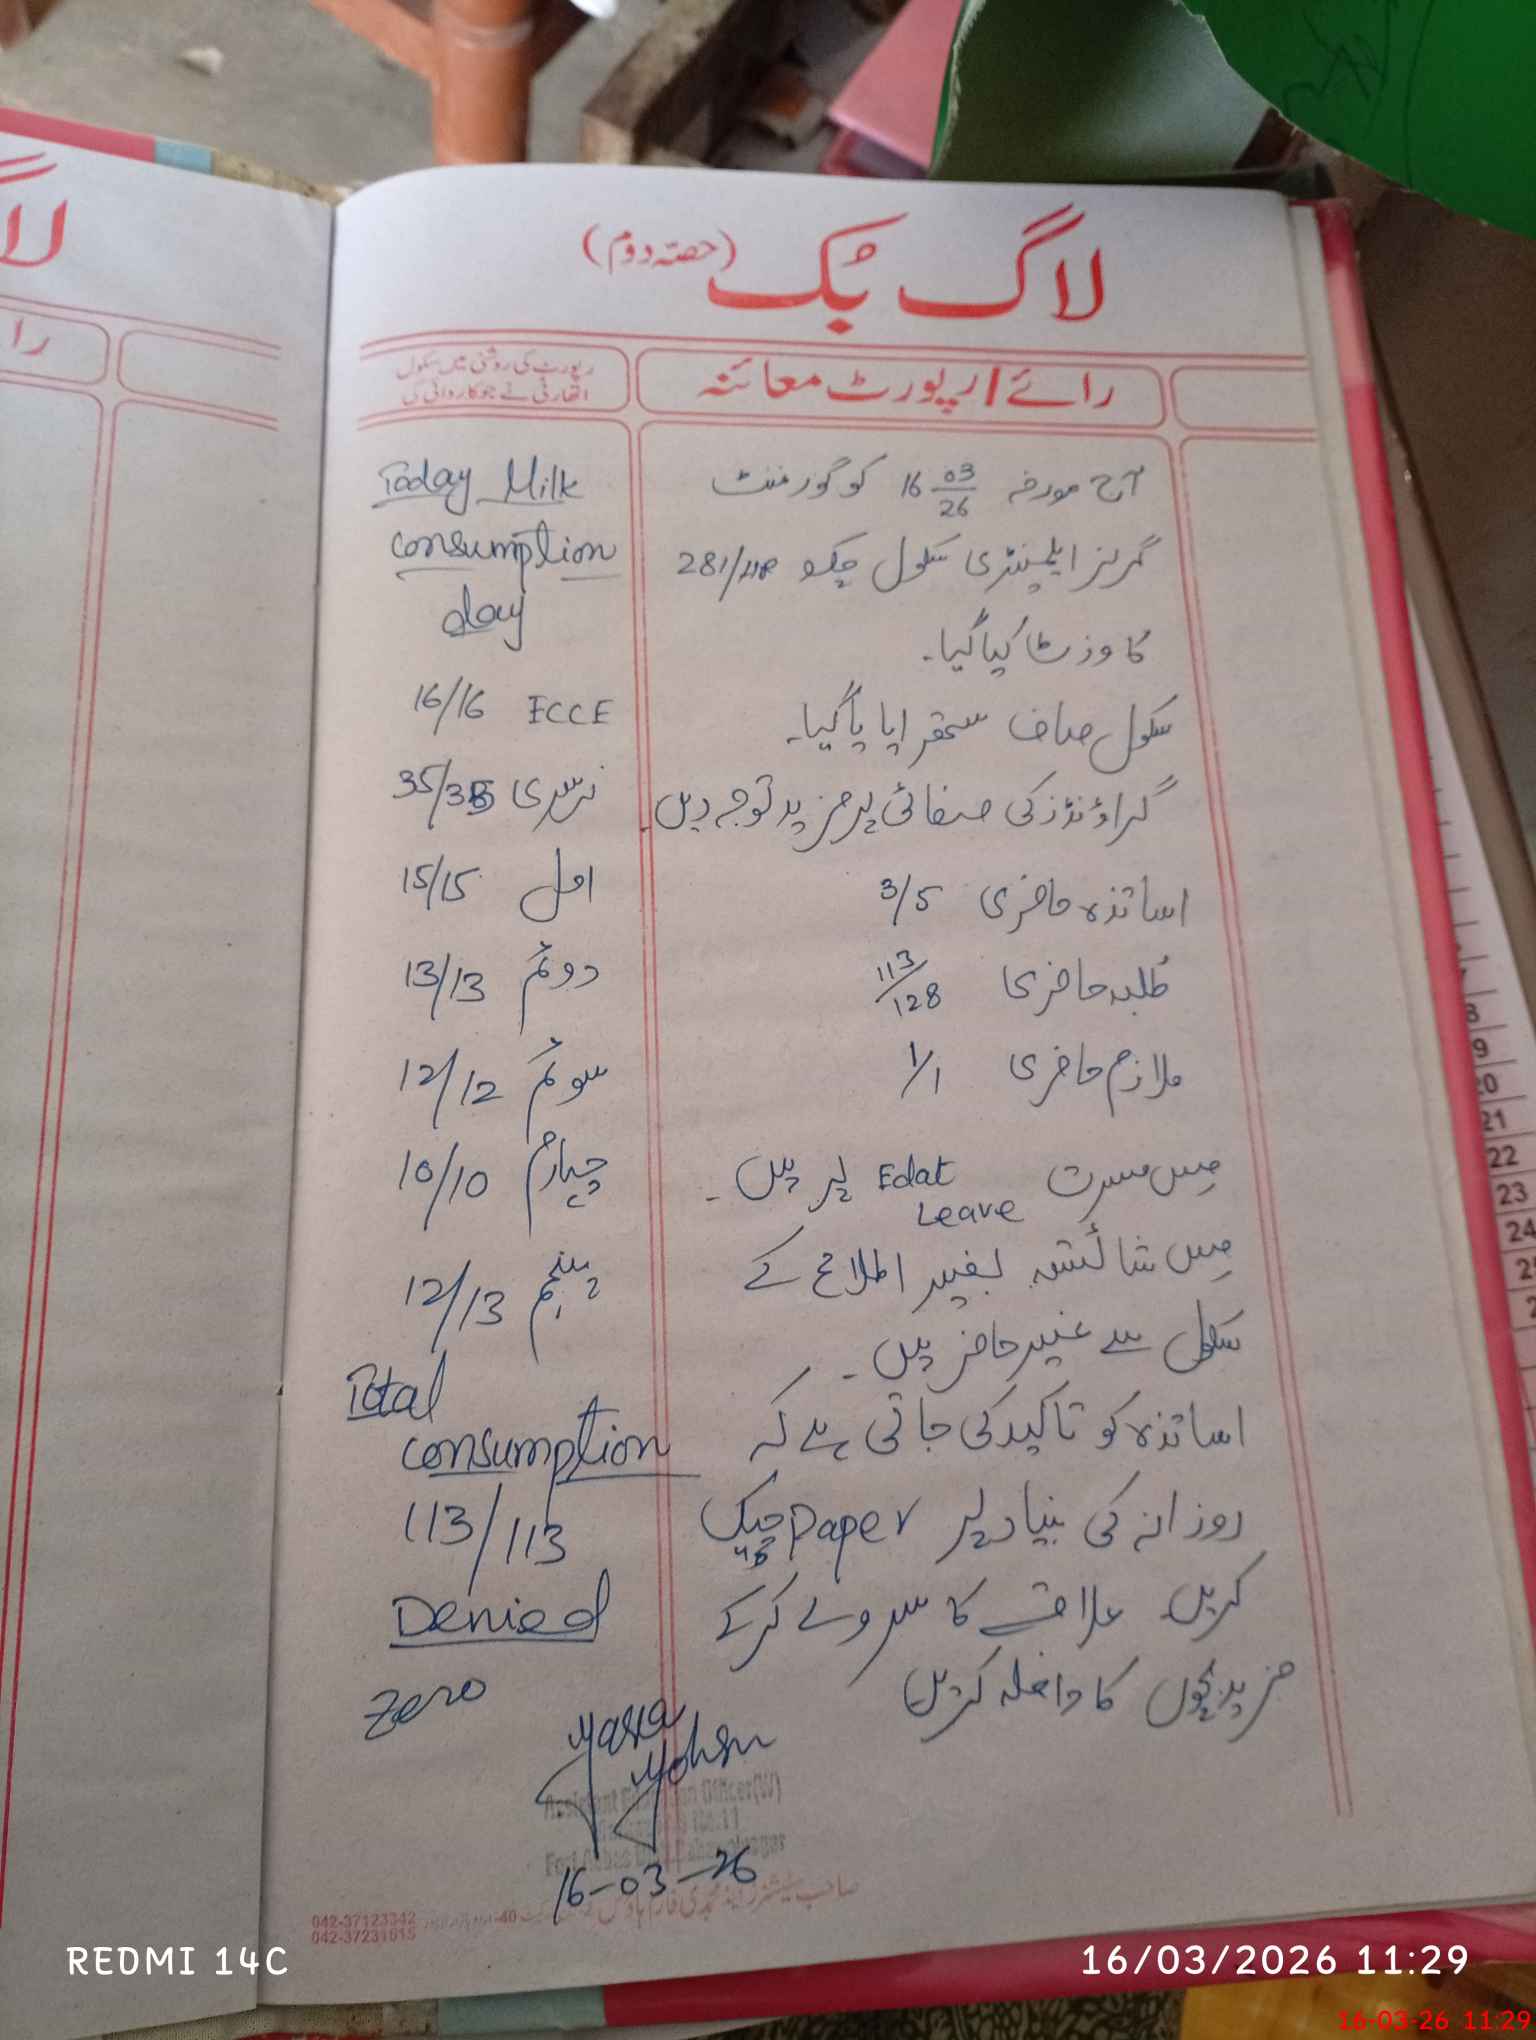 لاگ بُک (حصہ دوم)
رائے / رپورٹ معائنہ
رپورٹ کی روشنی میں سکول
اتھارٹی نے جو کاروائی کی
آج مورخہ 16 03/26 کو گورنمنٹ
گرلز ایلیمنٹری سکول چک 281/HR
کا وزٹ کیا گیا۔
سکول صاف ستھرا پایا گیا۔
گراؤنڈز کی صفائی پر مزید توجہ دیں۔
اساتذہ حاضری 3/5
طلبہ حاضری 113/128
ملازم حاضری 1/1
مِس مسرت Edat پر ہیں۔
Leave
مِس شائستہ بغیر اطلاع کے
سکول سے غیر حاضر ہیں۔
اساتذہ کو تاکید کی جاتی ہے کہ
روزانہ کی بنیاد پر Paper چیک
کریں علاقے کا سروے کرکے
مزید بچوں کا داخلہ کریں
Today Milk
consumption
day
16/16 ECCE
35/35 نرسری
15/15 اول
13/13 دوئم
12/12 سوئم
10/10 چہارم
12/13 پنجم
Total
consumption
113/113
Denied
zero
Mohsin
Assistant Education Officer(W)
16-03-26
042-37123342
042-37231615
لا
را
8
9
20
21
22
23
24
REDMI 14C
16/03/2026 11:29
16-03-26 11:29